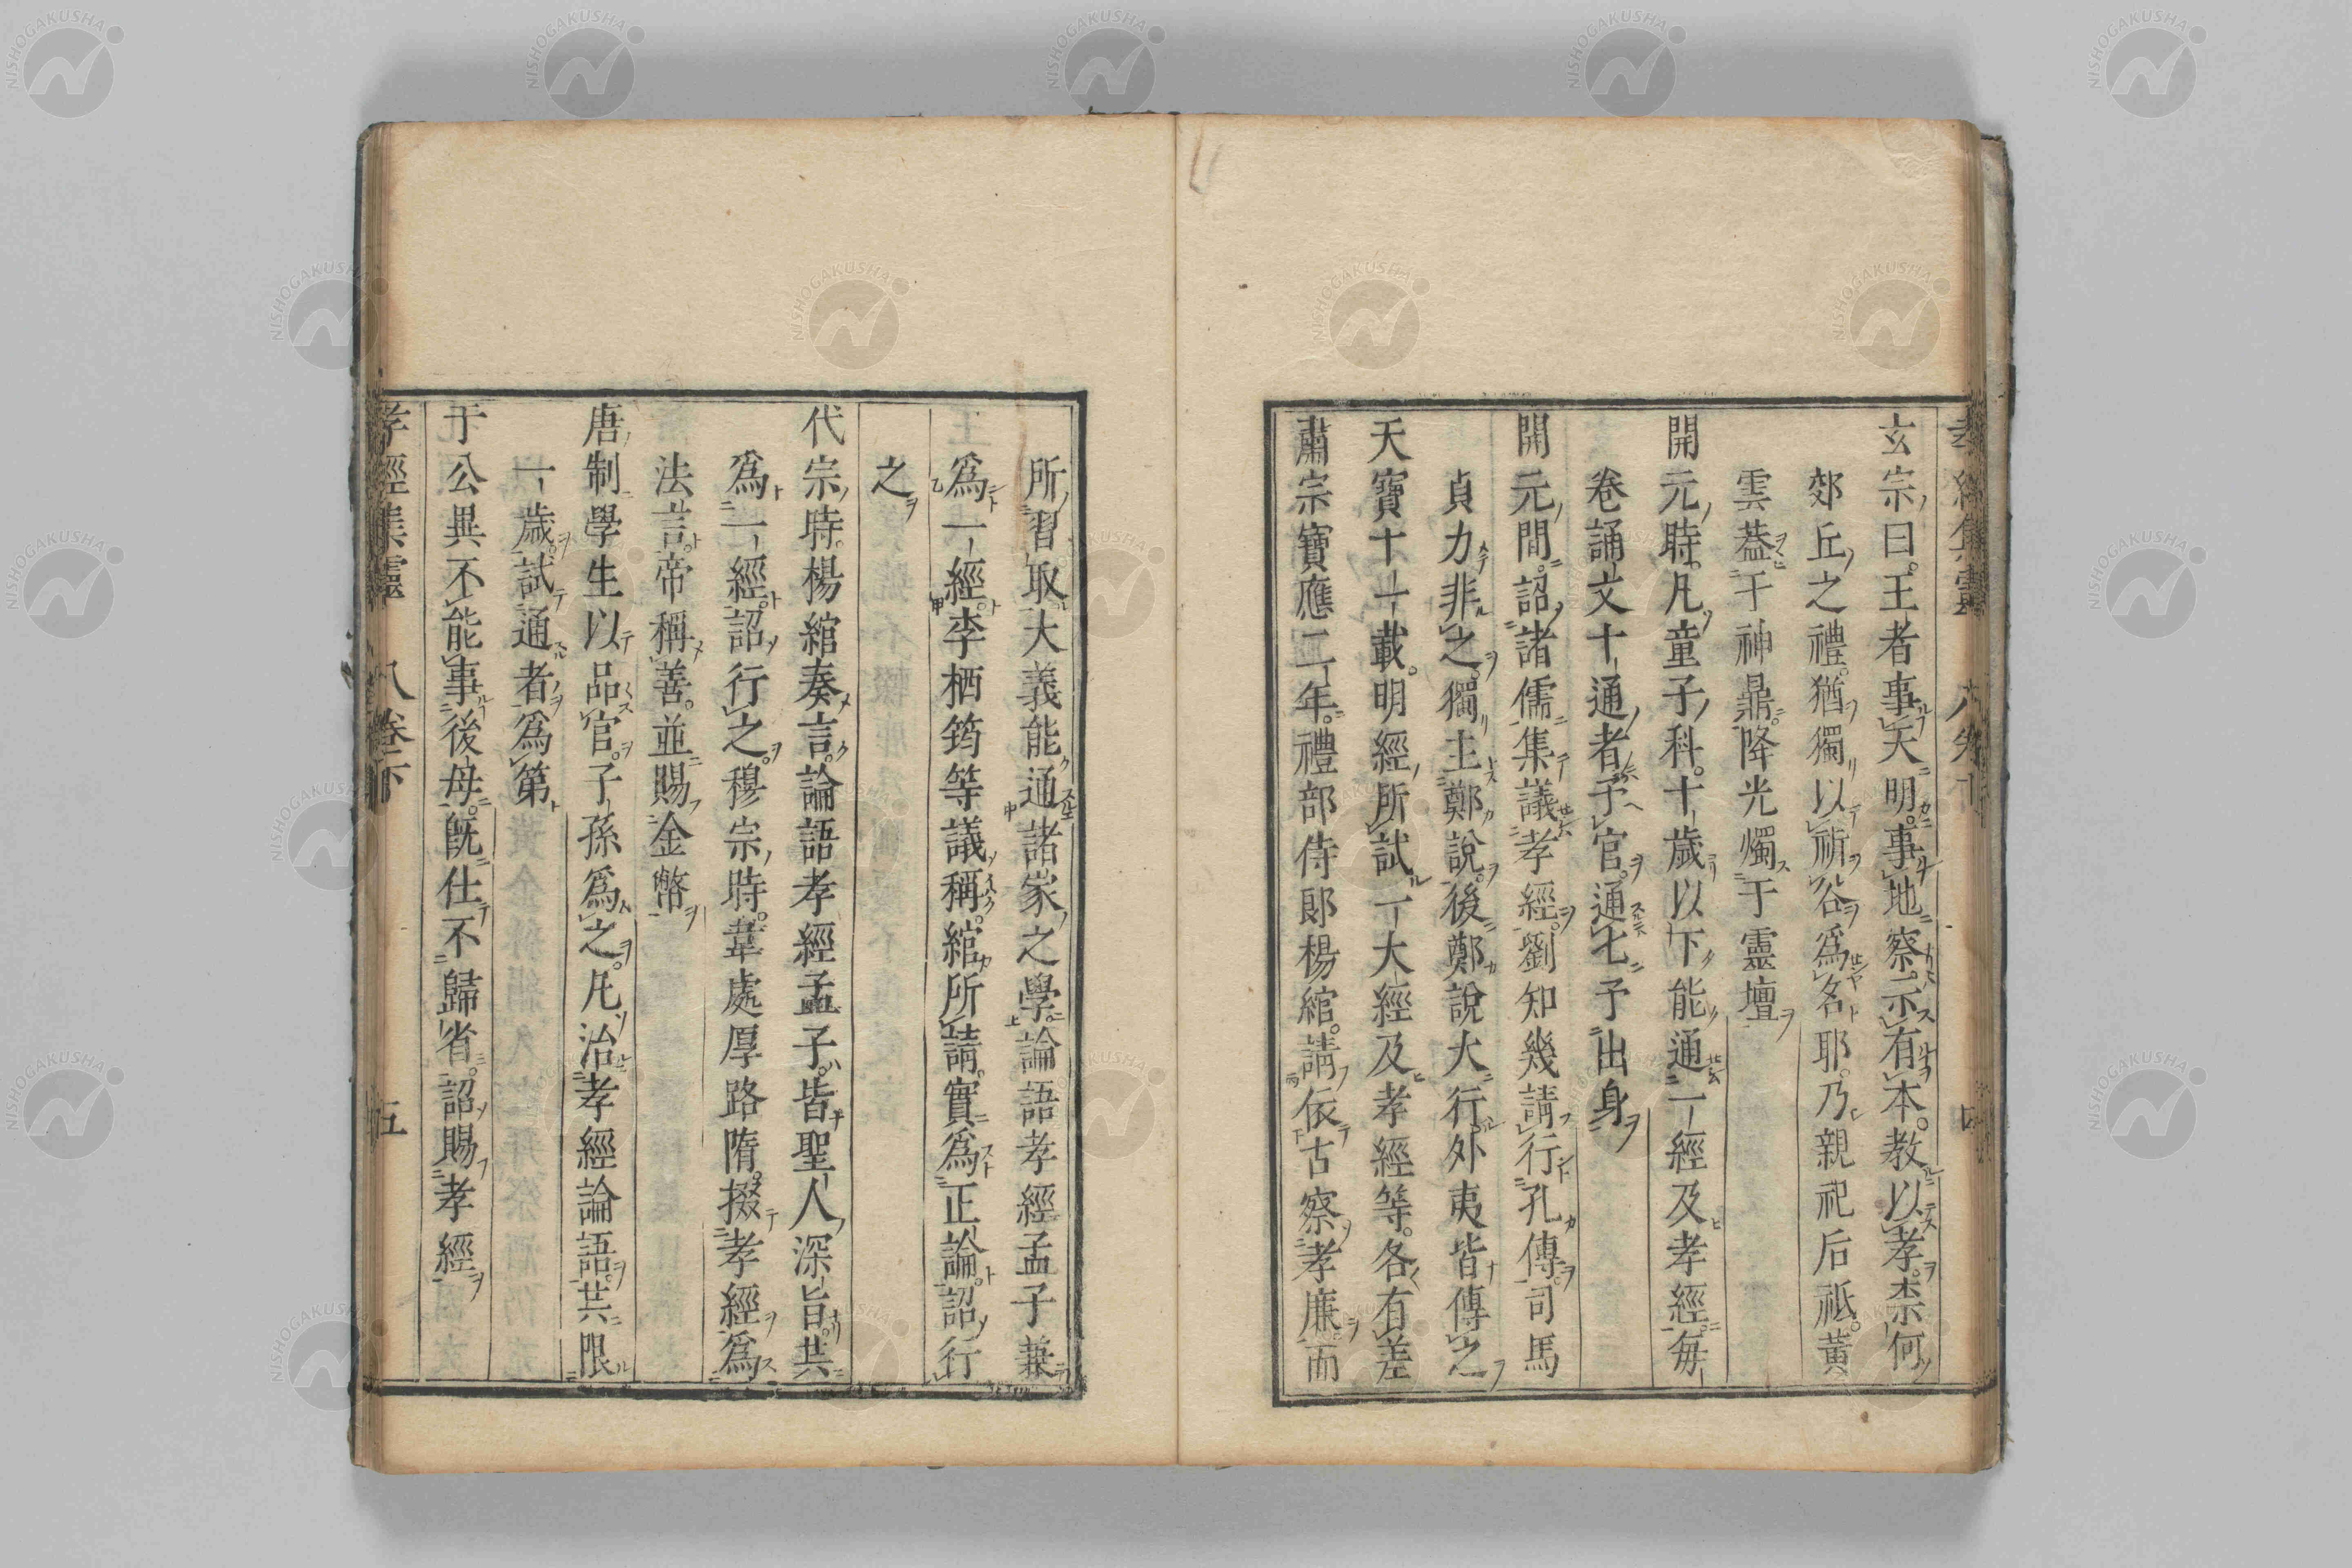 玄宗曰王者事天明事地察示有本教以孝柰何
郊丘之禮猶獨以祈谷爲名耶乃親祀后祗黃
雲葢于神鼎降光燭于靈壇
開元時凡童子科十歲以下能通一經及孝經每
卷誦文十通者予官通七予出身
開元間詔諸儒集議孝經劉知幾請行孔傳司馬
貞力非之獨主鄭說後鄭說大行外夷皆傳之
天寶十一載明經所試一大經及孝經等各有差
肅宗寶應二年禮部侍郎楊綰請依古察孝廉而
所習取大義能通諸家之學論語孝經孟子兼
爲一經李栖筠等議稱綰所請實爲正論詔行
之
代宗時楊綰奏言論語孝經孟子皆聖人深旨共
爲一經詔行之穆宗時韋處厚路隋掇孝經爲
法言帝稱善並賜金幣
唐制學生以品官子孫爲之凡治孝經論語共限
一歲試通者爲第
于公異不能事後母旣仕不歸省詔賜孝經
孝經集靈 八卷下 五
NISHOGAKUSHA